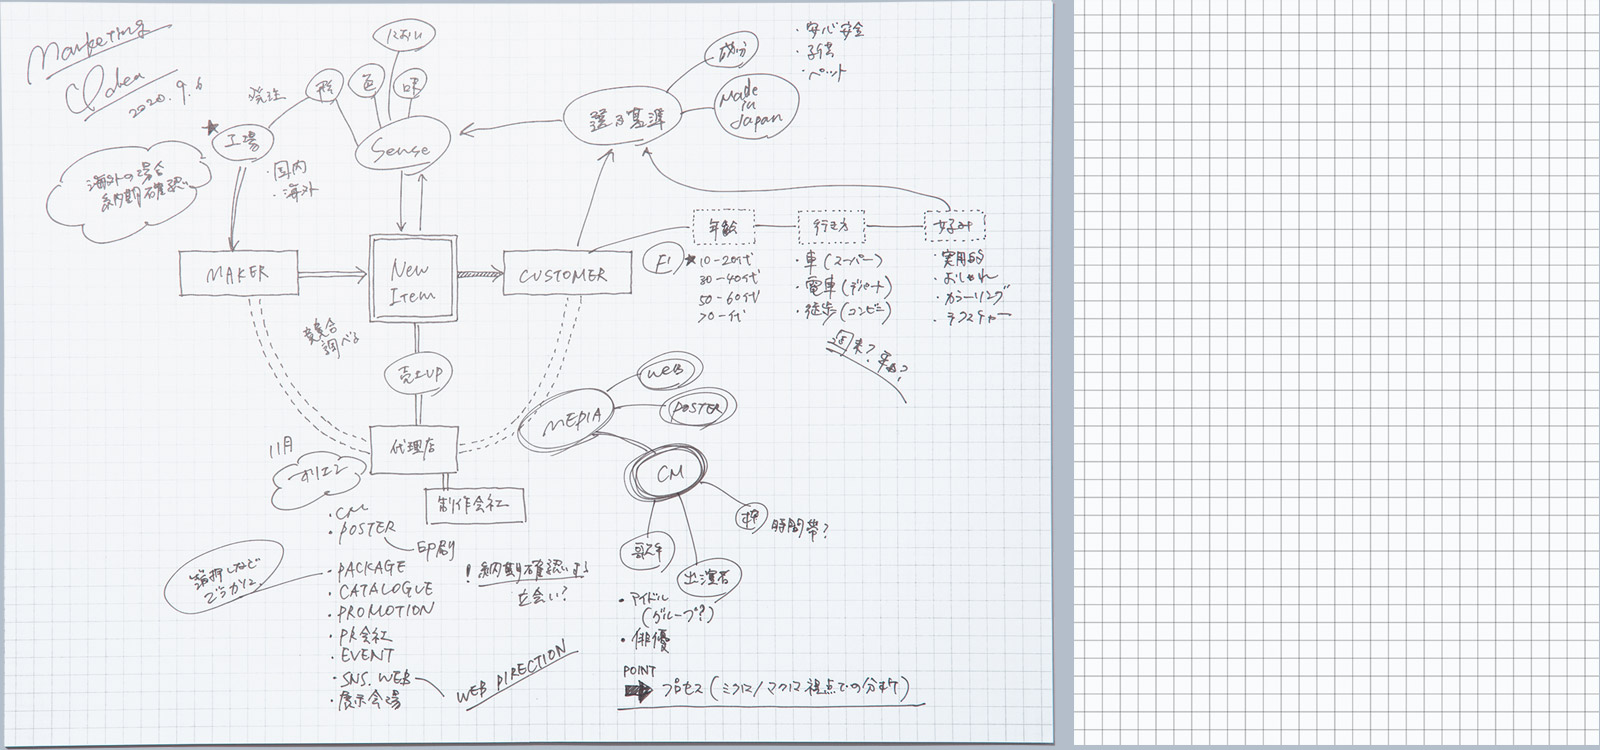 Marketing
Idea
2020.9.6
におい
形
色
味
発注
工場
Sense
・国内
・海外
海外の場合
納期確認
成分
・安心安全
・子供
・ペット
選ぶ基準
Made
in
Japan
MAKER
New
Item
CUSTOMER
年齢
行き方
好み
F1
★10-20代
30-40代
50-60代
70-代
・車(スーパー)
・電車(デパート)
・徒歩(コンビニ)
・実用的
・おしゃれ
・カラーリング
・テクスチャー
競合
調べる
売上UP
代理店
制作会社
11月
オリエン
MEDIA
WEB
POSTER
CM
枠
時間帯?
歌手
出演者
・アイドル
(グループ?)
・俳優
・CM
・POSTER
印刷
・PACKAGE
・CATALOGUE
・PROMOTION
・PR会社
・EVENT
・SNS. WEB
・展示会場
箔押しなど
どうかに
! 納期確認する
立会い?
WEB DIRECTION
POINT
プロセス(ミクロ/マクロ視点での分析)